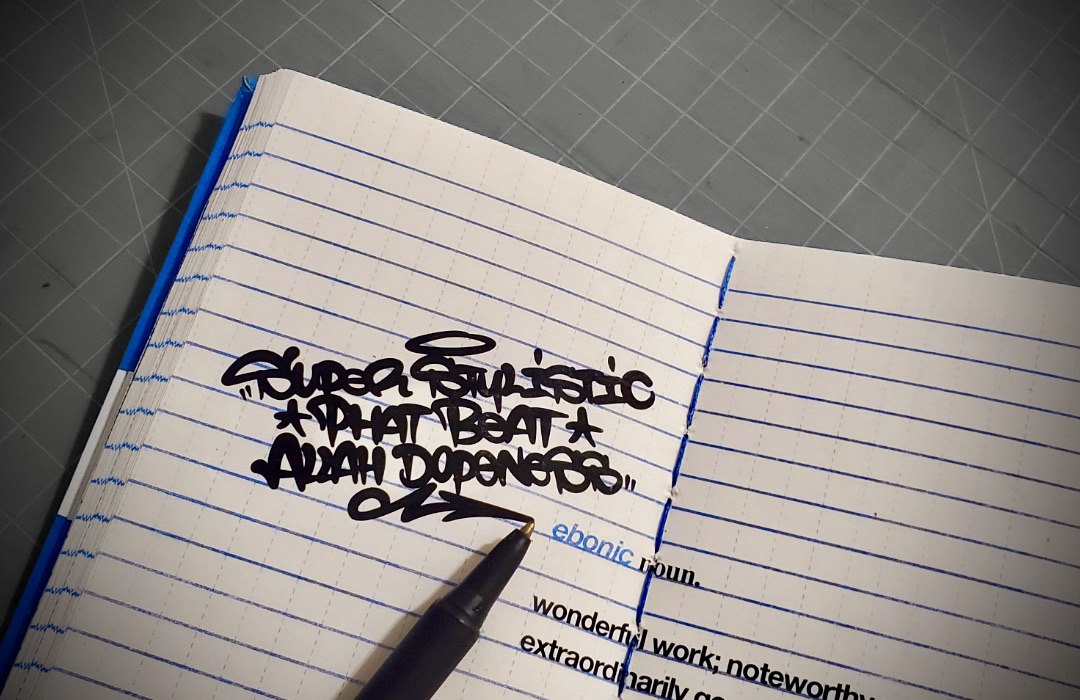 "SUPER STYLISTIC
★ PHAT BEAT ★
ALLAH DOPENESS"
ebonic noun.
wonderful work; noteworthy
extraordinarily